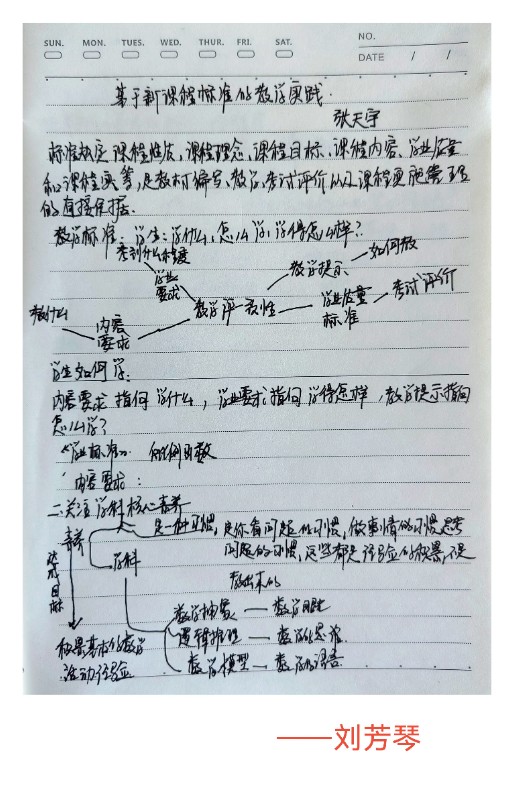 SUN. MON. TUES. WED. THUR. FRI. SAT.
NO.
DATE / /
基于新课程标准的教学实践.
张天宇
标准规定课程性质、课程理念、课程目标、课程内容、学业质量
和课程实等,是教材编写、教学、考试评价以及课程实施管理
的直接依据.
教学标准:学生:学什么,怎么学,学得怎么样?
考到什么程度
学业
要求
教学提示
如何教
教学评一致性
学业质量
标准
考试评价
教什么
内容
要求
学生如何学:
内容要求指向学什么,学业要求指向学得怎样,教学提示指向
怎么学?
《学业标准》
内容要求:
二.关注学科核心素养
素养
是一种习惯,是你看问题的习惯,做事情的习惯思考
问题的习惯,这些都是经验的积累,不是
教出来的
学科
达成目标
数学抽象 — 数学眼光
逻辑推理 — 数学的思维
数学模型 — 数学的语言
积累基本的数学
活动经验
——刘芳琴